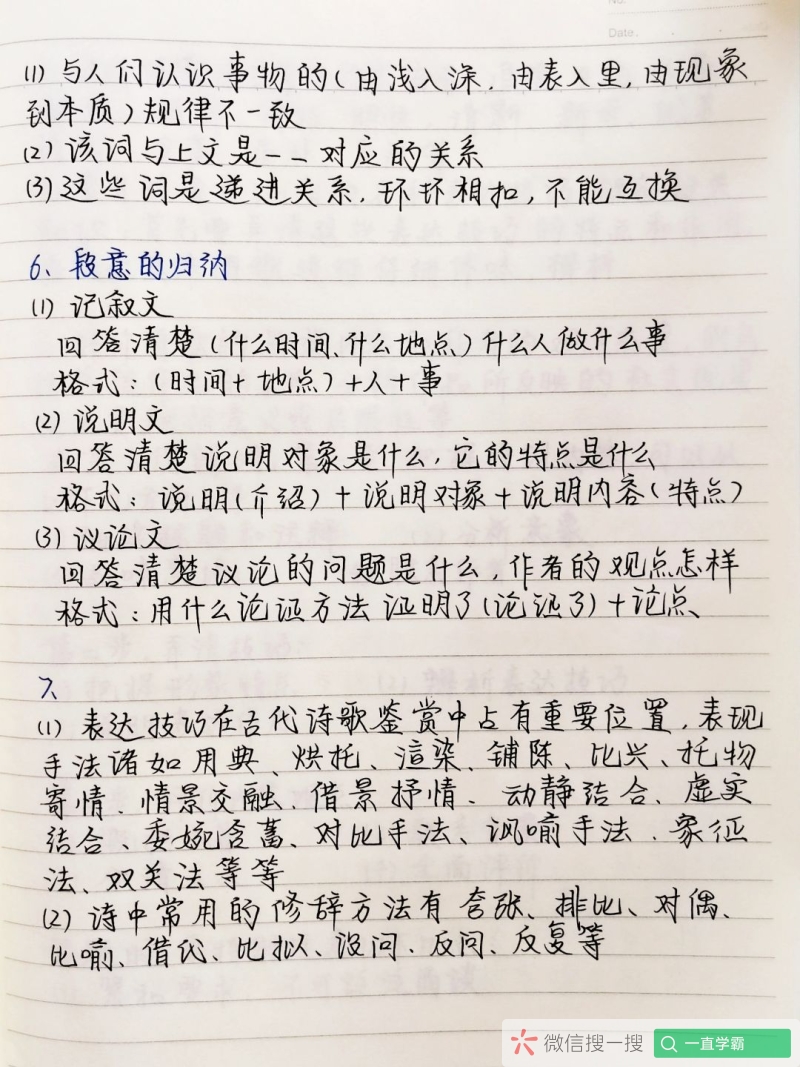 No.
Date.
(1) 与人们认识事物的(由浅入深、由表入里,由现象
到本质)规律不一致
(2) 该词与上文是一一对应的关系
(3) 这些词是递进关系,环环相扣,不能互换
6、段意的归纳
(1) 记叙文
回答清楚(什么时间、什么地点)什么人做什么事
格式:(时间+地点)+人+事
(2) 说明文
回答清楚说明对象是什么,它的特点是什么
格式:说明(介绍)+说明对象+说明内容(特点)
(3) 议论文
回答清楚议论的问题是什么,作者的观点怎样
格式:用什么论证方法证明了(论证了)+论点
7、
(1) 表达技巧在古代诗歌鉴赏中占有重要位置,表现
手法诸如用典、烘托、渲染、铺陈、比兴、托物
寄情、情景交融、借景抒情、动静结合、虚实
结合、委婉含蓄、对比手法、讽喻手法、象征
法、双关法等等
(2) 诗中常用的修辞方法有夸张、排比、对偶、
比喻、借代、比拟、设问、反问、反复等
微信搜一搜
一直学霸